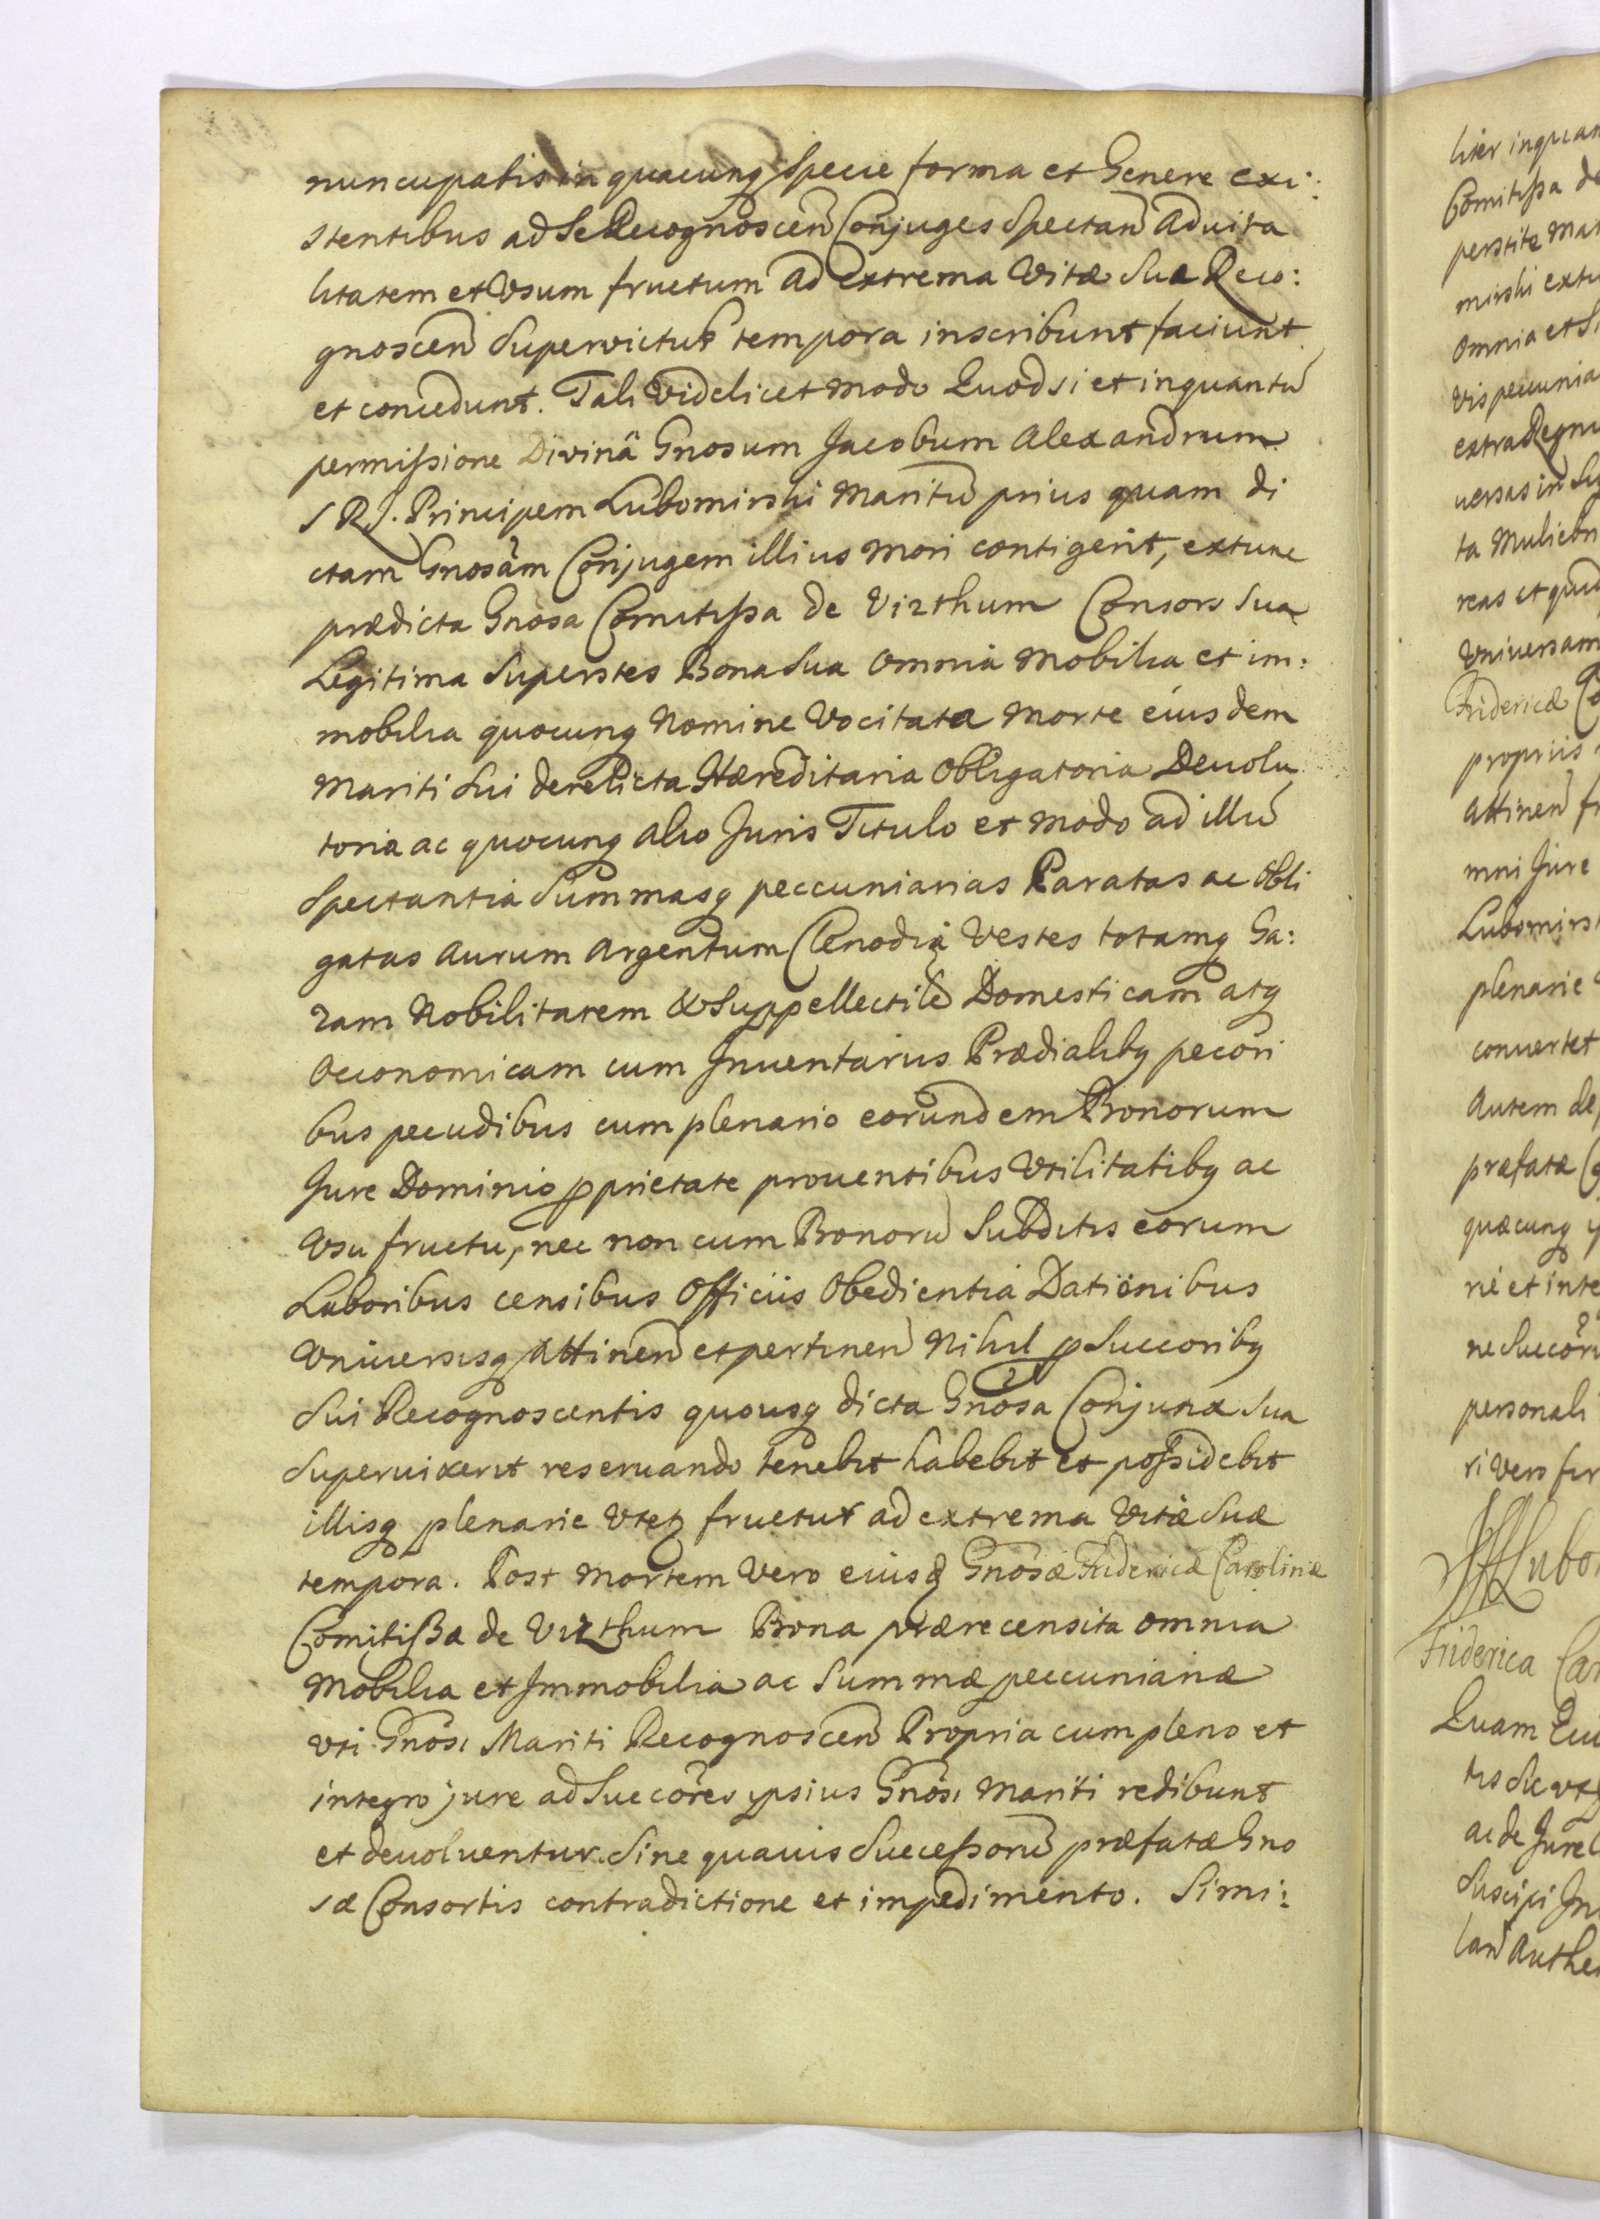 nuncupatis in quacunq specie forma et Genere exi:
stentibus ad Se Recognoscen Conjuges Spectan Aduita
litatem et Vsum fructum ad extrema Vitæ Suæ Reco:
gnoscen Supervictur tempora inscribunt faciunt
et concedunt. Tali Videlicet modo Quod si et inquantu
permissione Divinâ Gnosum Jacobum Alexandrum
S R J. Principem Lubomirski Maritu prius quam di
ctam Gnosam Conjugem illius mori contigerit, extunc
prædicta Gnosa Comitissa de Vizthum Consors Sua
Legitima Superstes Bona Sua Omnia Mobilia et im:
mobilia quocunq Nomine Vocitata Morte eiusdem
Mariti Sui derelicta Hæreditaria Obligatoria Devolu
toria ac quocunq alio Juris Titulo et modo ad illu
Spectantia Summasq peccuniarias Paratas ac Obli
gatas Aurum Argentum Clenodia Vestes totamq Ga:
zam Nobilitarem & Suppellectile Domesticam atq
Oeconomicam cum Inuentarius Prædialibq pecori
bus pecudibus cum plenario eorundem Bonorum
Jure Dominio pprietate prouentibus Vtilitatibq ac
Vsu fructu, nec non cum Bonoru Subditis eorum
Laboribus censibus Officiis Obedientia Dationibus
Vniuersisq Attinen et pertinen Nihil p Succoribq
Sui Recognoscentis quousq dicta Gnosa Conjunx Sua
Superuixerit reseruando tenebit habebit et possidebit
illisq plenarie Vtetz fruetur ad extrema Vitæ Suæ
tempora. Post Mortem Vero eiusd Gnosæ Fridericæ Carolinæ
Comitissæ de Vizthum Bona prærecensita omnia
Mobilia et Immobilia ac Summæ peccuniariæ
Vti Gnosi Mariti Recognoscen Propria cum pleno et
integro jure ad Succores ipsius Gnosi Mariti redibunt
et deuoluentur. Sine quauis Successoru præfatæ Gno
sæ Consortis contradictione et impedimento. Simi:
liter inquan
Comitissa de
perstite Mar
mirski extu
Omnia et Si
vis peccunia
extra Regnu
uersas in Su
ta Muliebri
reas et quid
Vniuersam
Fridericæ Co
propriis
Attinen fr
mni Jure
Lubomirs
plenarie
conuertet
Autem de
præfatæ C
quæcunq
rie et inte
ne Succoru
personali
ri Vero fir
Lubo
Friderica Car
Quam Qui
tis Sic vtq
ac de Jure
Suscipi In
lan Authe